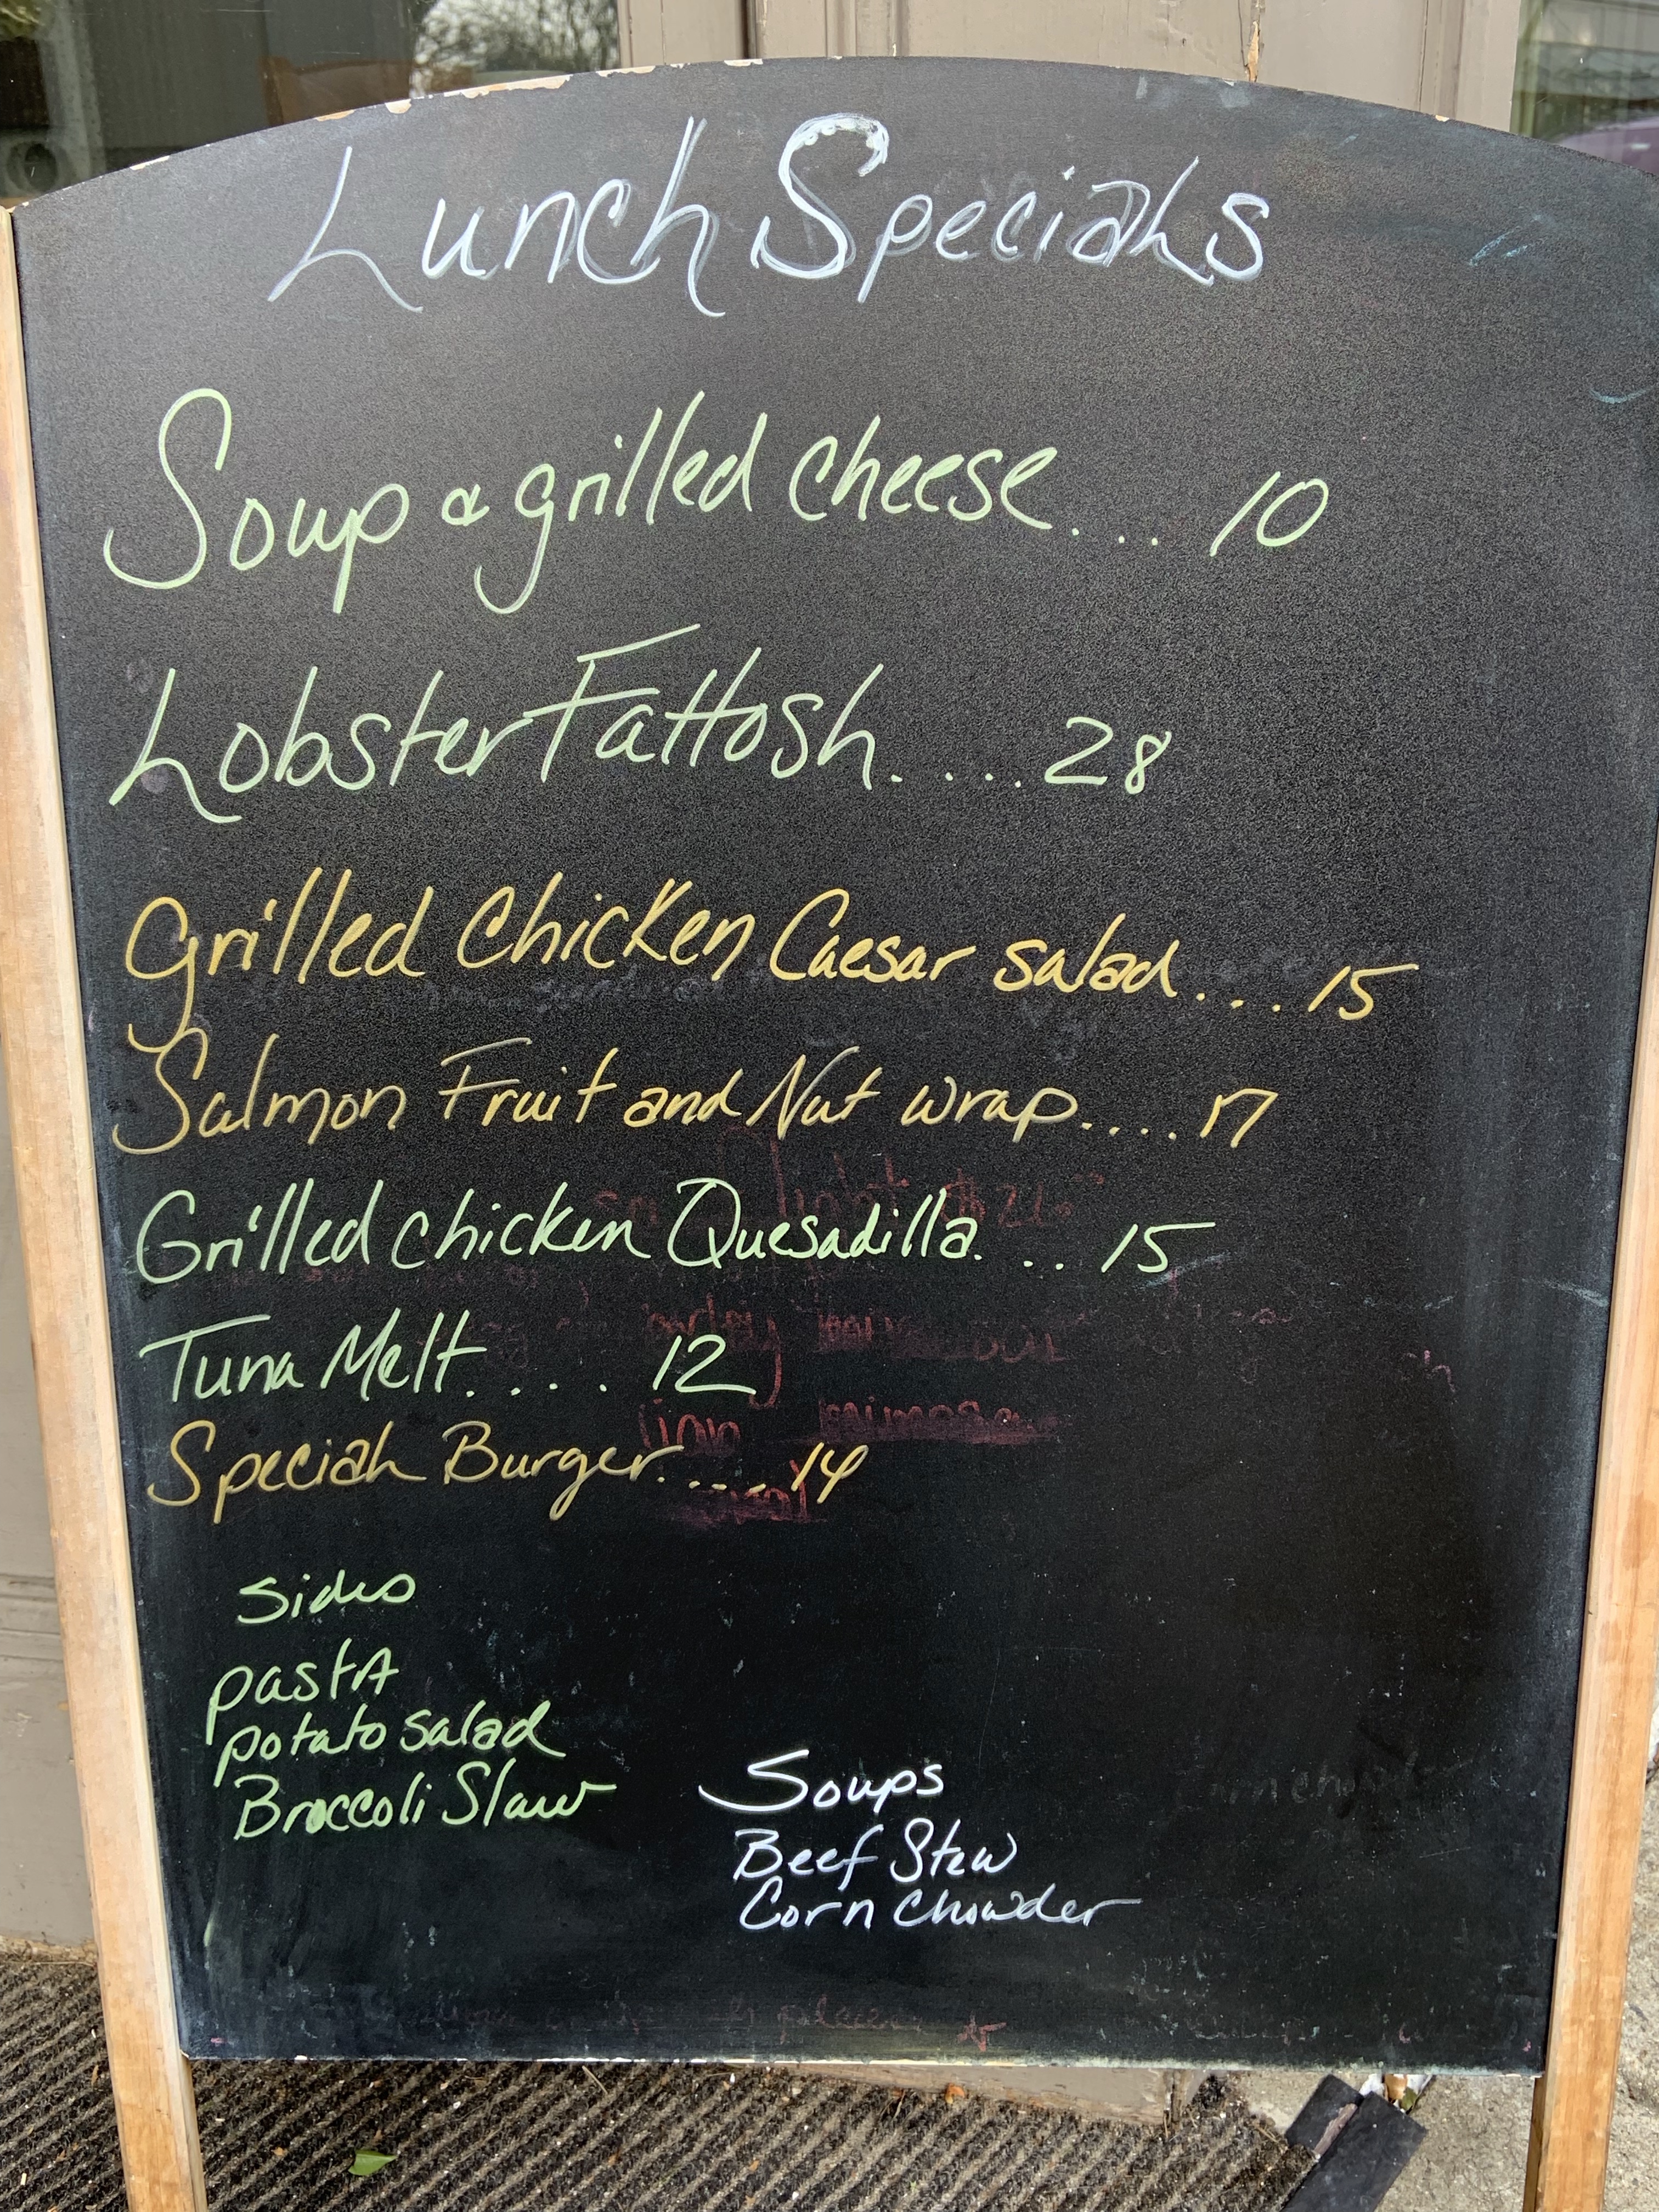 Lunch Specials
Soup & grilled cheese.... 10
Lobster Fattosh..... 28
Grilled Chicken Caesar salad.... 15
Salmon Fruit and Nut wrap..... 17
Grilled chicken Quesadilla.... 15
Tuna Melt..... 12
Special Burger..... 14
Sides
pastA
potato salad
Broccoli Slaw
Soups
Beef Stew
Corn Chowder